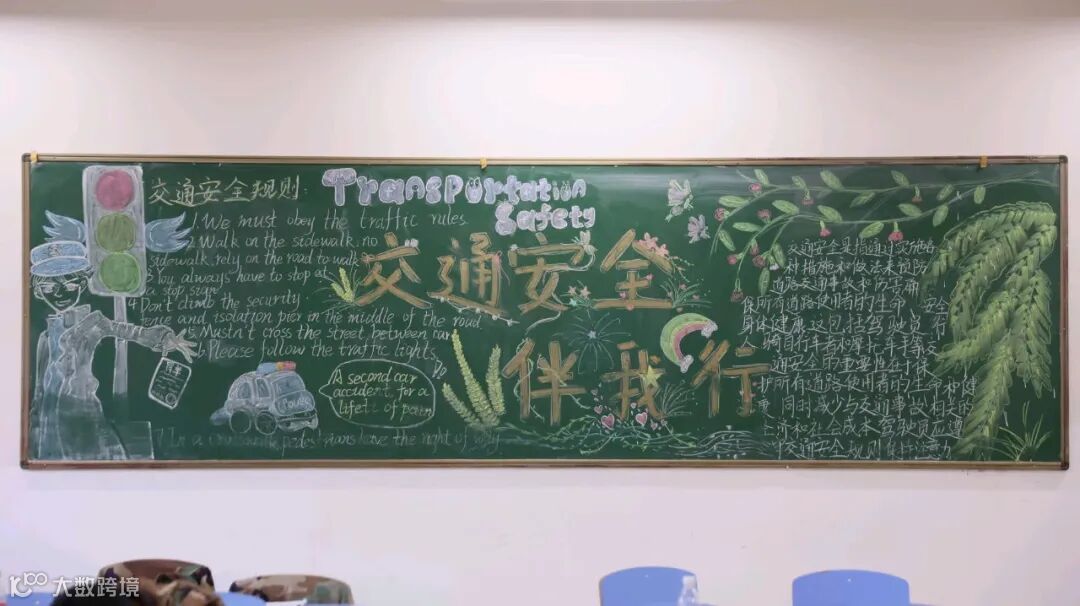 交通安全规则:
1. We must obey the traffic rules
2. Walk on the sidewalk, no
sidewalk, rely on the road to walk
3 You always have to stop at
a stop sign
4. Don't climb the security
fence and isolation pier in the middle of the road
5. Mustn't cross the street between car
6. Please follow the traffic lights
7 In a crosswalk, pedestrians have the right of way
Transportation
Safety
交通安全
伴我行
Police
A second car
accident, for a
lifeti of pain
交通安全是指通过实施各
种措施和做法来预防
道路交通事故和伤害确
保所有道路使用者的生命 安全
身体健康 这包括驾驶员 行
人 骑自行车者和摩托车手等交
通安全的重要性在于保
护所有道路使用者的生命和健
康 同时减少与交通事故相关的
经济和社会成本 驾驶员应遵
守交通安全规则 保持注意力
大数跨境